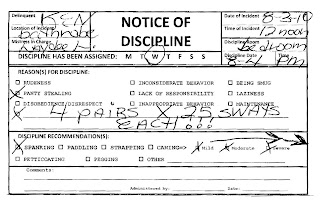 KEN NOTICE OF DISCIPLINE Date of Incident 8-3-10
Location of Incident bathroom Time of Incident 12 noon
Mistress in Charge Discipline Room bedroom
DISCIPLINE HAS BEEN ASSIGNED: M T W T F S S Discipline Date Time PM
REASON(S) FOR DISCIPLINE:
☐ RUDENESS ☐ INCONSIDERATE BEHAVIOR ☐ BEING SMUG
☒ PARTY STEALING ☐ LACK OF RESPONSIBILITY ☐ LAZINESS
☐ DISOBEDIENCE/DISRESPECT ☐ INAPPROPRIATE BEHAVIOR ☐ MAINTENANCE
X 4 PAIRS X 25 SWATS
EACH!!!
DISCIPLINE RECOMMENDATION(S):
☒ SPANKING ☐ PADDLING ☐ STRAPPING ☐ CANING=> ☒ Mild ☒ Moderate ☒ Severe
☐ PETTICOATING ☐ PEGGING ☐ OTHER
Comments:
Administered by: Date: